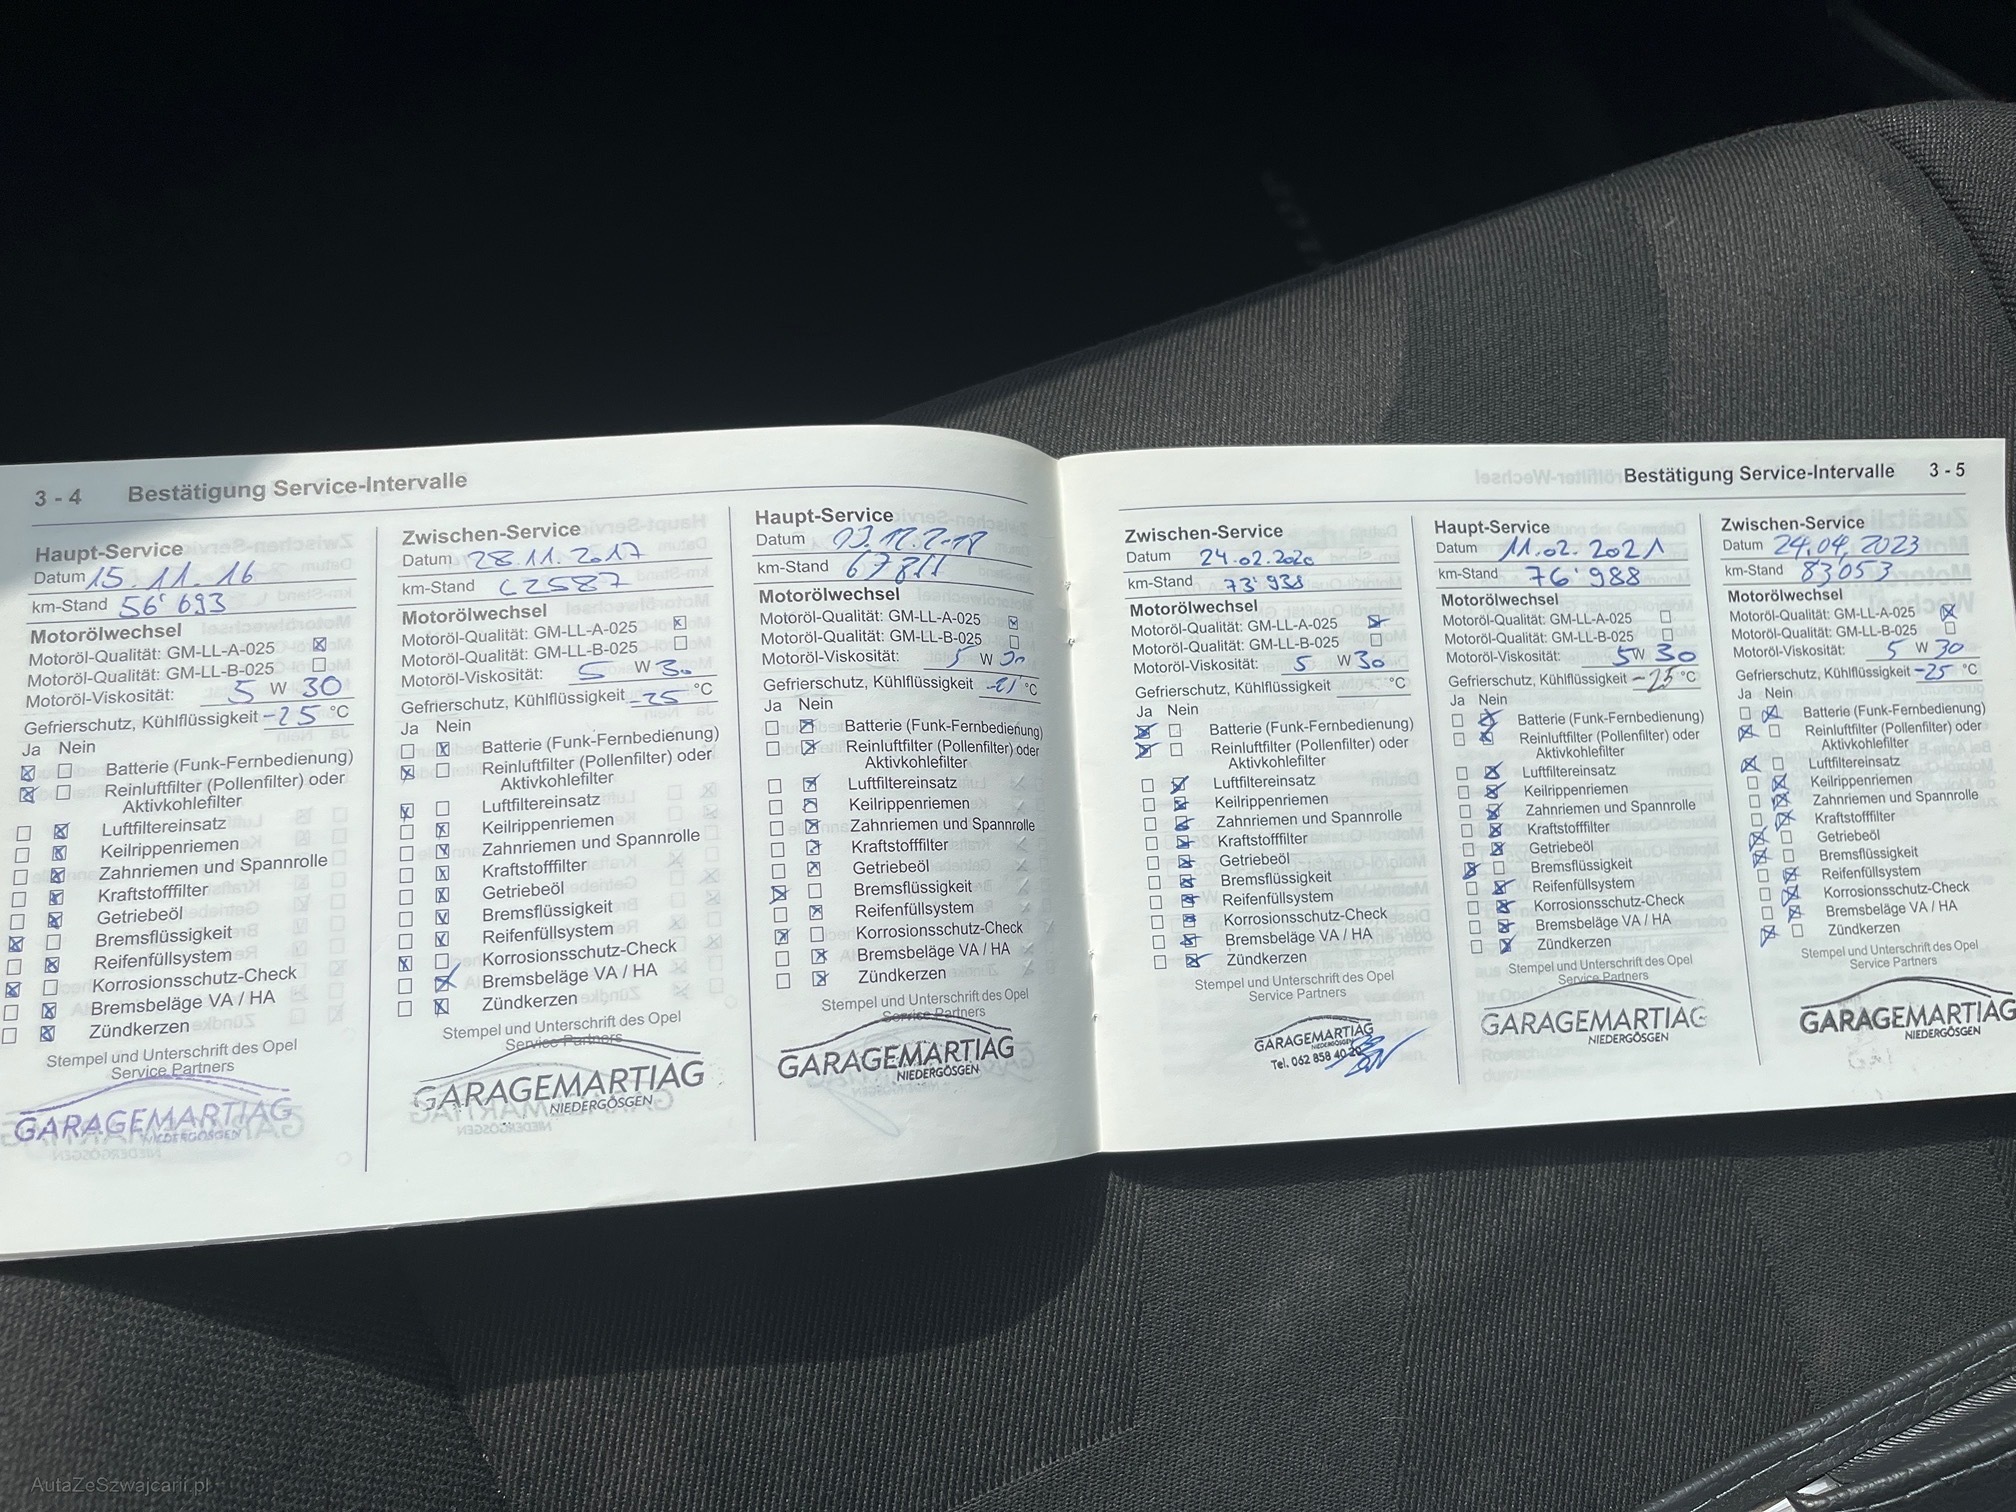 3 - 4 Bestätigung Service-Intervalle
Haupt-Service
Datum 15.11.16
km-Stand 56'693
Motorölwechsel
Motoröl-Qualität: GM-LL-A-025
Motoröl-Qualität: GM-LL-B-025
Motoröl-Viskosität: 5 W 30
Gefrierschutz, Kühlflüssigkeit -25 °C
Ja Nein
Batterie (Funk-Fernbedienung)
Reinluftfilter (Pollenfilter) oder
Aktivkohlefilter
Luftfiltereinsatz
Keilrippenriemen
Zahnriemen und Spannrolle
Kraftstofffilter
Getriebeöl
Bremsflüssigkeit
Reifenfüllsystem
Korrosionsschutz-Check
Bremsbeläge VA / HA
Zündkerzen
Stempel und Unterschrift des Opel
Service Partners
GARAGEMARTIAG
NIEDERGÖSGEN
Zwischen-Service
Datum 28.11.2017
km-Stand 62587
Motorölwechsel
Motoröl-Qualität: GM-LL-A-025
Motoröl-Qualität: GM-LL-B-025
Motoröl-Viskosität: 5 W 30
Gefrierschutz, Kühlflüssigkeit -25 °C
Ja Nein
Batterie (Funk-Fernbedienung)
Reinluftfilter (Pollenfilter) oder
Aktivkohlefilter
Luftfiltereinsatz
Keilrippenriemen
Zahnriemen und Spannrolle
Kraftstofffilter
Getriebeöl
Bremsflüssigkeit
Reifenfüllsystem
Korrosionsschutz-Check
Bremsbeläge VA / HA
Zündkerzen
Stempel und Unterschrift des Opel
Service Partners
GARAGEMARTIAG
NIEDERGÖSGEN
Haupt-Service
Datum
km-Stand 67811
Motorölwechsel
Motoröl-Qualität: GM-LL-A-025
Motoröl-Qualität: GM-LL-B-025
Motoröl-Viskosität: 5 W 30
Gefrierschutz, Kühlflüssigkeit °C
Ja Nein
Batterie (Funk-Fernbedienung)
Reinluftfilter (Pollenfilter) oder
Aktivkohlefilter
Luftfiltereinsatz
Keilrippenriemen
Zahnriemen und Spannrolle
Kraftstofffilter
Getriebeöl
Bremsflüssigkeit
Reifenfüllsystem
Korrosionsschutz-Check
Bremsbeläge VA / HA
Zündkerzen
Stempel und Unterschrift des Opel
Service Partners
GARAGEMARTIAG
NIEDERGÖSGEN
Bestätigung Service-Intervalle 3 - 5
Zwischen-Service
Datum 24.02.2020
km-Stand 73'938
Motorölwechsel
Motoröl-Qualität: GM-LL-A-025
Motoröl-Qualität: GM-LL-B-025
Motoröl-Viskosität: 5 W 30
Gefrierschutz, Kühlflüssigkeit °C
Ja Nein
Batterie (Funk-Fernbedienung)
Reinluftfilter (Pollenfilter) oder
Aktivkohlefilter
Luftfiltereinsatz
Keilrippenriemen
Zahnriemen und Spannrolle
Kraftstofffilter
Getriebeöl
Bremsflüssigkeit
Reifenfüllsystem
Korrosionsschutz-Check
Bremsbeläge VA / HA
Zündkerzen
Stempel und Unterschrift des Opel
Service Partners
GARAGEMARTIAG
NIEDERGÖSGEN
Tel. 062 858 40 20
Haupt-Service
Datum 11.02.2021
km-Stand 76'988
Motorölwechsel
Motoröl-Qualität: GM-LL-A-025
Motoröl-Qualität: GM-LL-B-025
Motoröl-Viskosität: 5 W 30
Gefrierschutz, Kühlflüssigkeit -25 °C
Ja Nein
Batterie (Funk-Fernbedienung)
Reinluftfilter (Pollenfilter) oder
Aktivkohlefilter
Luftfiltereinsatz
Keilrippenriemen
Zahnriemen und Spannrolle
Kraftstofffilter
Getriebeöl
Bremsflüssigkeit
Reifenfüllsystem
Korrosionsschutz-Check
Bremsbeläge VA / HA
Zündkerzen
Stempel und Unterschrift des Opel
Service Partners
GARAGEMARTIAG
NIEDERGÖSGEN
Zwischen-Service
Datum 24.04.2023
km-Stand 83053
Motorölwechsel
Motoröl-Qualität: GM-LL-A-025
Motoröl-Qualität: GM-LL-B-025
Motoröl-Viskosität: 5 W 30
Gefrierschutz, Kühlflüssigkeit -25 °C
Ja Nein
Batterie (Funk-Fernbedienung)
Reinluftfilter (Pollenfilter) oder
Aktivkohlefilter
Luftfiltereinsatz
Keilrippenriemen
Zahnriemen und Spannrolle
Kraftstofffilter
Getriebeöl
Bremsflüssigkeit
Reifenfüllsystem
Korrosionsschutz-Check
Bremsbeläge VA / HA
Zündkerzen
Stempel und Unterschrift des Opel
Service Partners
GARAGEMARTIAG
NIEDERGÖSGEN
AutaZeSzwajcarii.pl